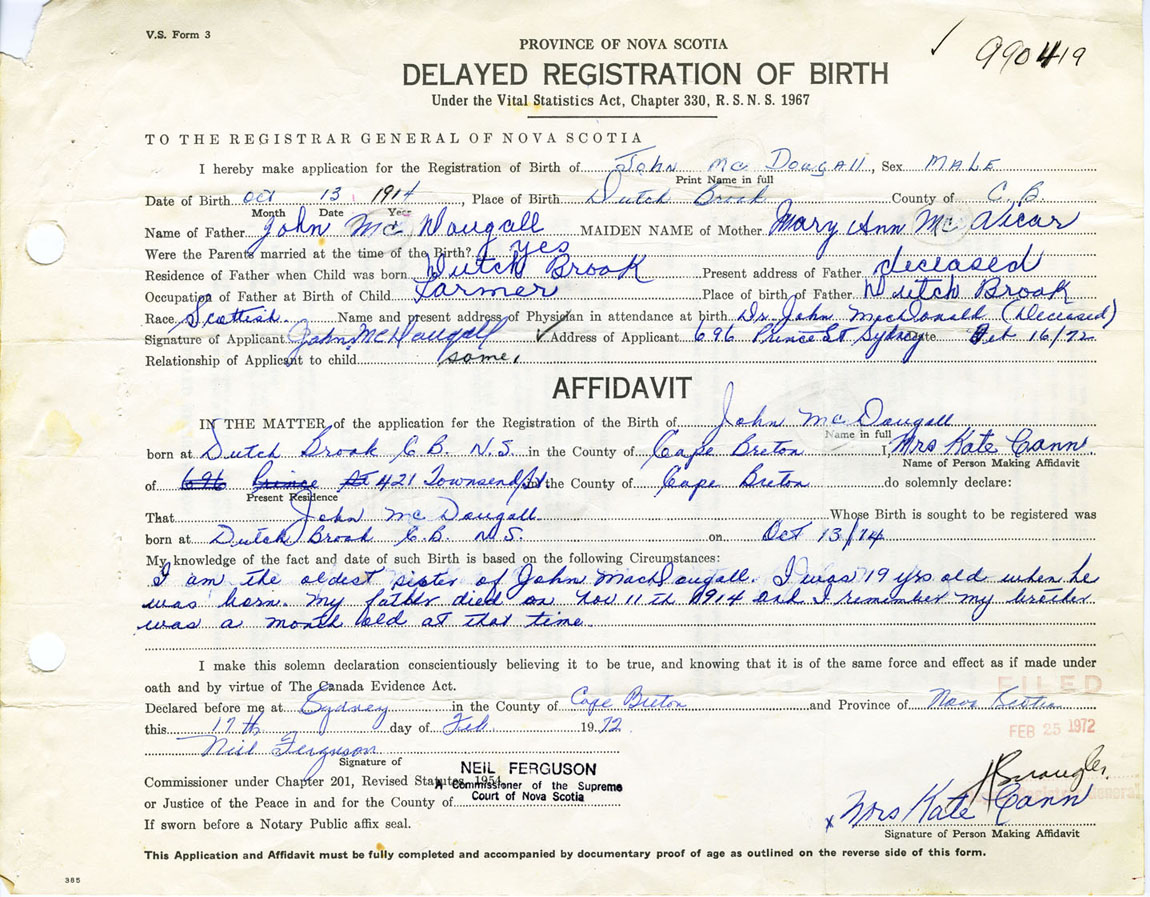 V.S. Form 3
990419
PROVINCE OF NOVA SCOTIA
DELAYED REGISTRATION OF BIRTH
Under the Vital Statistics Act, Chapter 330, R.S.N.S. 1967
TO THE REGISTRAR GENERAL OF NOVA SCOTIA
I hereby make application for the Registration of Birth of John Mc Dougall, Sex MALE
Print Name in full
Date of Birth Oct 13 1914, Place of Birth Dutch Brook County of C.B.
Month Date Year
Name of Father John Mc Dougall MAIDEN NAME of Mother Mary Ann Mc Vicar
Were the Parents married at the time of the Birth? yes
Residence of Father when Child was born Dutch Brook Present address of Father deceased
Occupation of Father at Birth of Child Farmer Place of birth of Father Dutch Brook
Race Scottish Name and present address of Physician in attendance at birth Dr. John MacDonald (Deceased)
Signature of Applicant John McDougall Address of Applicant 696 Prince St Sydney Date Feb 16/72
Relationship of Applicant to child same.
AFFIDAVIT
IN THE MATTER of the application for the Registration of the Birth of John McDougall
Name in full
born at Dutch Brook C.B. N.S. in the County of Cape Breton I, Mrs Kate Cann.
Name of Person Making Affidavit
of 696 Prince St 421 Townsend St. in the County of Cape Breton do solemnly declare:
Present Residence
That John McDougall Whose Birth is sought to be registered was
born at Dutch Brook C.B. N.S. on Oct 13/14
My knowledge of the fact and date of such Birth is based on the following Circumstances:
I am the oldest sister of John MacDougall. I was 19 yrs old when he
was born. My father died on Nov 11th 1914 and I remember my brother
was a month old at that time.
I make this solemn declaration conscientiously believing it to be true, and knowing that it is of the same force and effect as if made under
oath and by virtue of The Canada Evidence Act.
FILED
Declared before me at Sydney in the County of Cape Breton and Province of Nova Scotia
this 17th day of Feb. 1972
FEB 25 1972
Neil Ferguson
Signature of
NEIL FERGUSON
Commissioner under Chapter 201, Revised Statutes, 1954
A Commissioner of the Supreme
Court of Nova Scotia
or Justice of the Peace in and for the County of
General
x Mrs Kate Cann
If sworn before a Notary Public affix seal.
Signature of Person Making Affidavit
This Application and Affidavit must be fully completed and accompanied by documentary proof of age as outlined on the reverse side of this form.
385